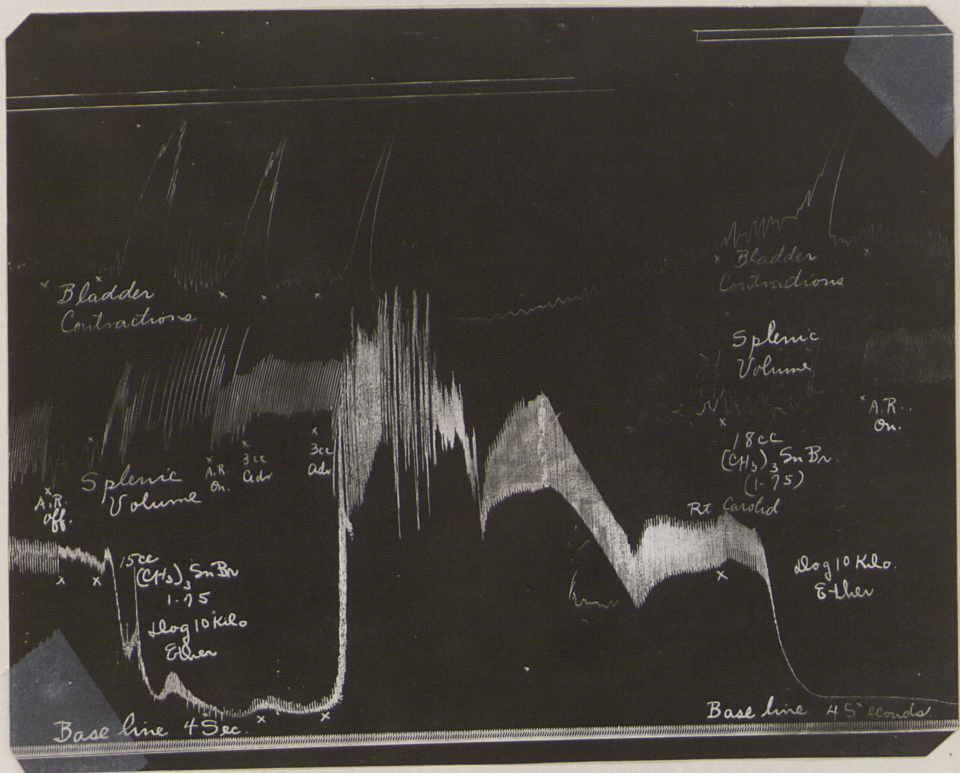 Bladder
Contractions
Splenic
Volume
A.R.
Off.
A.R.
On.
3cc
Adr
3cc
Adr.
15cc
(CH3)3 SnBr
1-75
Dog 10 Kilo
Ether
Base line 4 Sec.
Bladder
Contractions
Splenic
Volume
A.R..
On.
18cc
(CH3)3 SnBr.
(1-75)
Rt Carotid
Dog 10 Kilo.
Ether
Base line 4 Seconds.